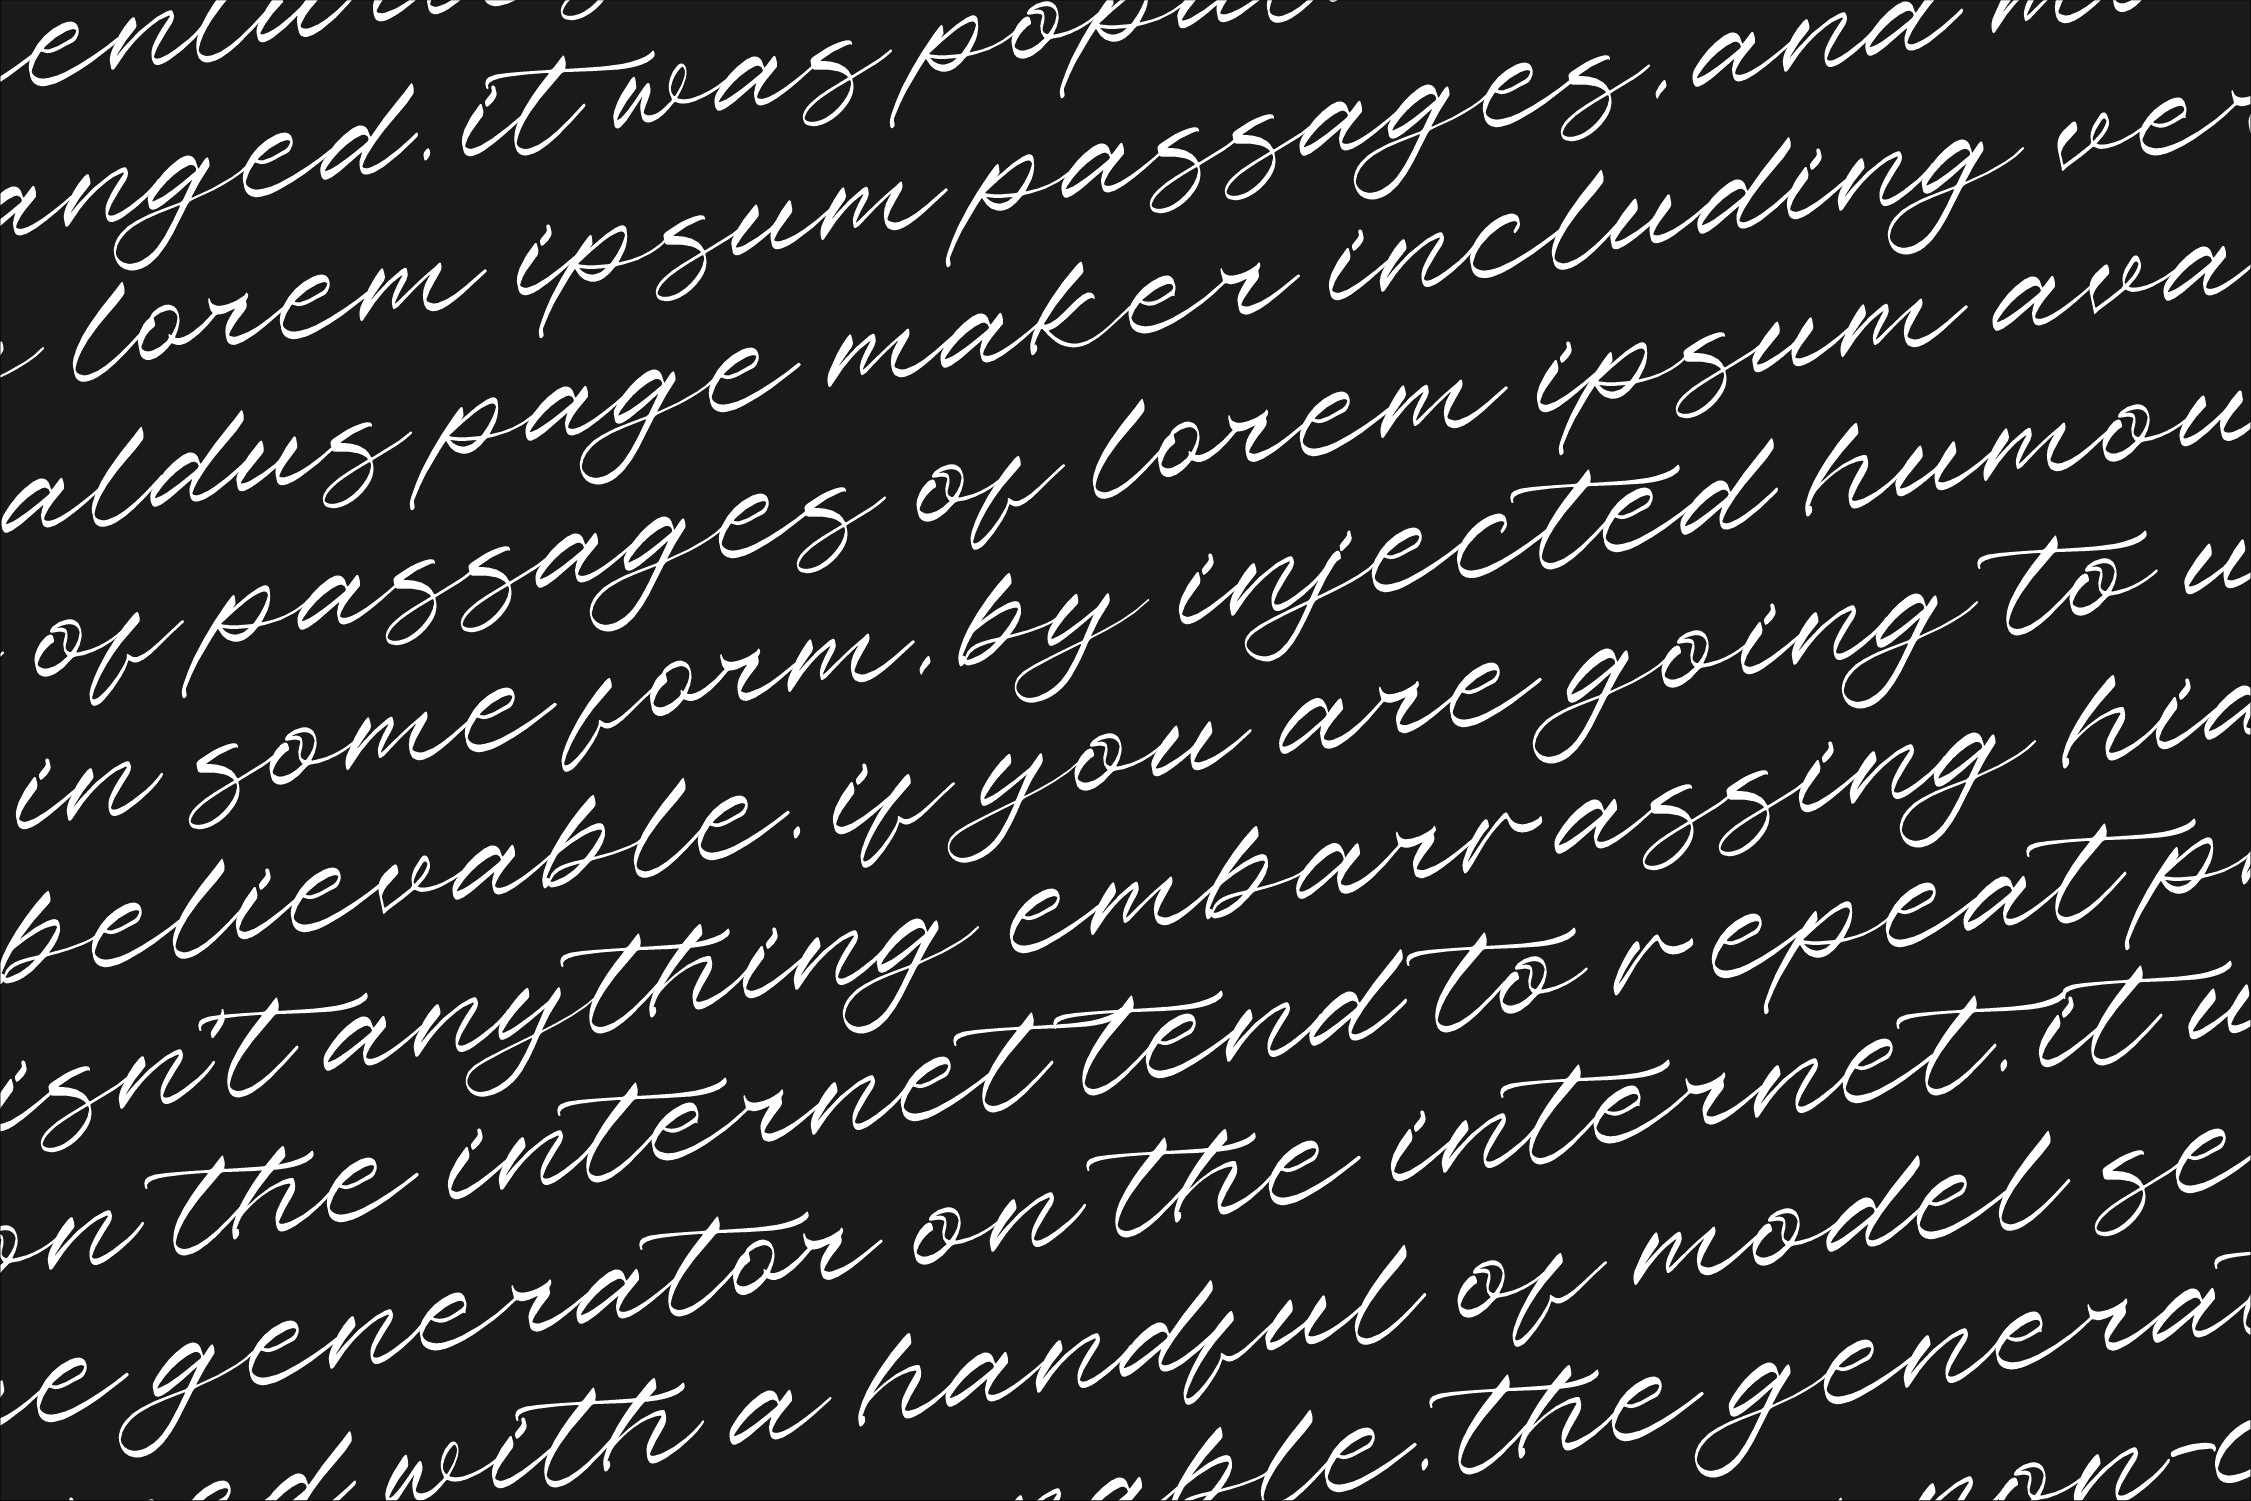 anged. it was popu
lorem ipsum passages. and m
aldus page maker including ver
of passages of lorem ipsum ava
in some form. by injected humou
believable. if you are going to u
isn't anything embarrassing hid
on the internet tend to repeat pr
e generator on the internet. it u
ed with a handful of model se
able. the generat
non-c